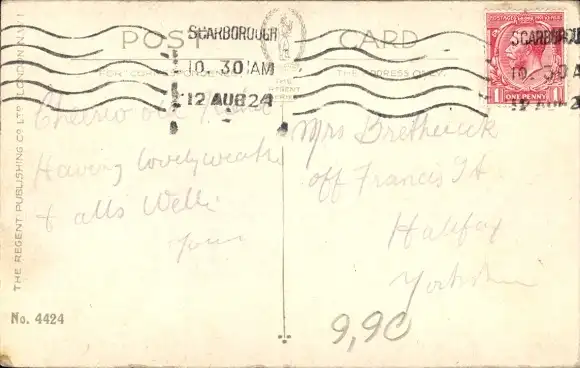 POST CARD
FOR CORRESPONDENCE
THE ADDRESS ONLY.
THE REGENT SERIES
SCARBOROUGH
10. 30 AM
12 AUG 24
SCARBOROU
10. 30 A
12 AUG 2
POSTAGE REVENUE
1 ONE PENNY 1
Cheerio old
Having lovely weather
& alls Well
Yours
Mrs Brethwick
off Francis St
Halifax
Yorkshire
9,90
No. 4424
THE REGENT PUBLISHING CO LTD, LONDON, N.W. 1